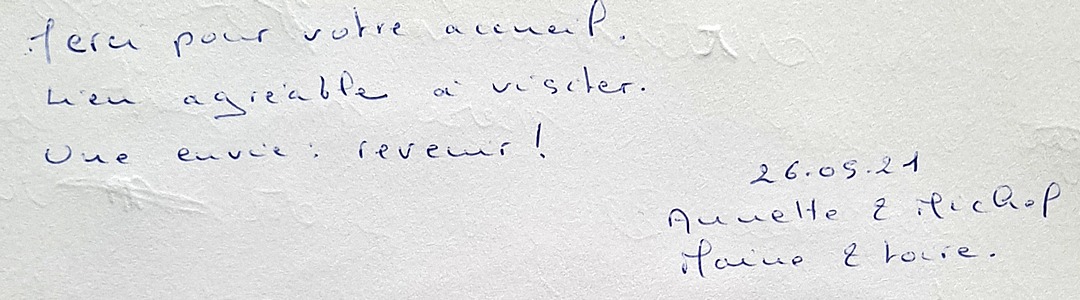 Merci pour votre accueil.
Lieu agréable à visiter.
Une envie : revenir !
26.05.21
Annette & Michel
Maine & Loire.